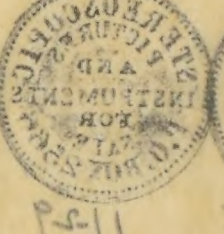 STEREOSCOPIC
PICTURES
AND
INSTRUMENTS
FOR
SALE
P.O. BOX